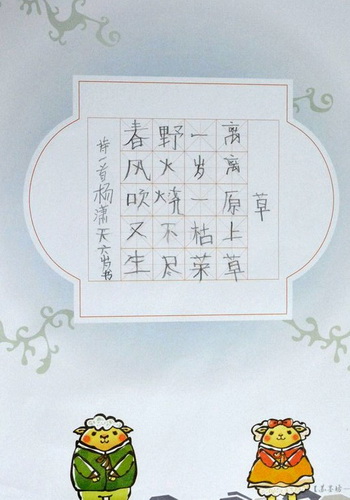 草
离离原上草
一岁一枯菜
野火烧不尽
春风吹又生
诗一首杨潇天六岁书